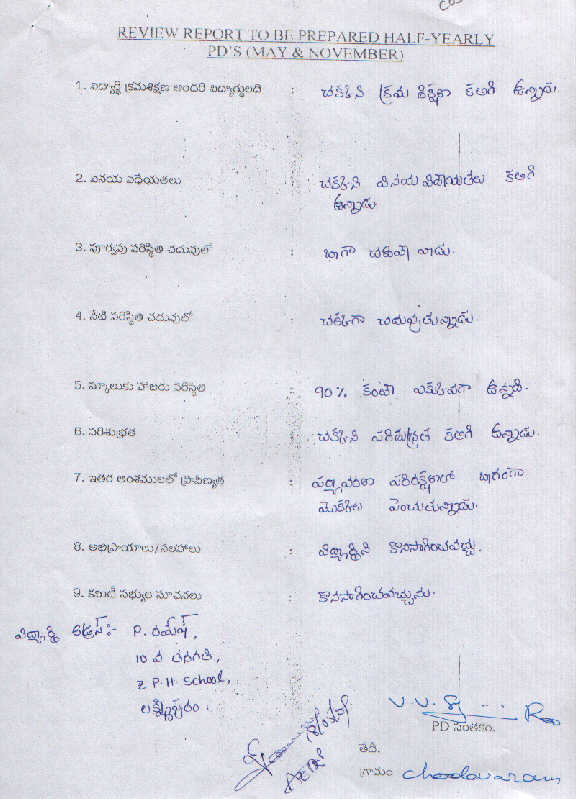 REVIEW REPORT TO BE PREPARED HALF-YEARLY
PD'S (MAY & NOVEMBER)
1. విద్యార్థి క్రమశిక్షణ అందరి విద్యార్థులది : చక్కని క్రమ శిక్షణ కలిగి ఉన్నాడు.
2. వినయ విధేయతలు : చక్కని వినయ విధేయతలు కలిగి
ఉన్నాడు.
3. పూర్వపు పరిస్థితి చదువులో : బాగా చదువే వాడు.
4. నేటి పరిస్థితి చదువులో : చక్కగా చదువుచున్నాడు.
5. స్కూలుకు హాజరు పరిస్థితి : 90% కంటే ఎక్కువగా ఉన్నది.
6. పరిశుభ్రత : చక్కని పరిశుభ్రత కలిగి ఉన్నాడు.
7. ఇతర అంశములలో ప్రావీణ్యత : పర్యావరణ పరిరక్షణలో భాగంగా
మొక్కలు పెంచుచున్నాడు.
8. అభిప్రాయాలు/సలహాలు : విద్యార్థిని కొనసాగించవచ్చు.
9. కమిటీ సభ్యుల సూచనలు : కొనసాగించవచ్చును.
విద్యార్థి అడ్రస్:- P. రమేష్,
10 వ తరగతి,
Z.P.H. School,
లక్ష్మీపురం.
V.V.S Rao
PD సంతకం.
తేది.
గ్రామం Chodavaram